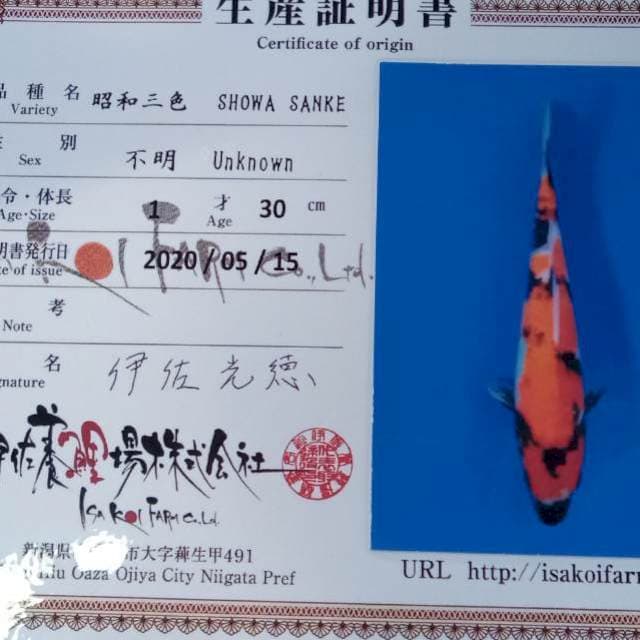 生産証明書
Certificate of origin
品種名 昭和三色 SHOWA SANKE
Variety
性別 不明 Unknown
Sex
令・体長 1 才 30 cm
Age·Size Age
明書発行日 2020/05/15
e of issue
KOI FARM Co., Ltd.
考
Note
名 伊佐光徳
gnature
伊佐養鯉場株式会社
ISA KOI FARM Co. Ltd.
新潟県 市大字薭生甲491
Oaza Ojiya City Niigata Pref
URL http://isakoifar